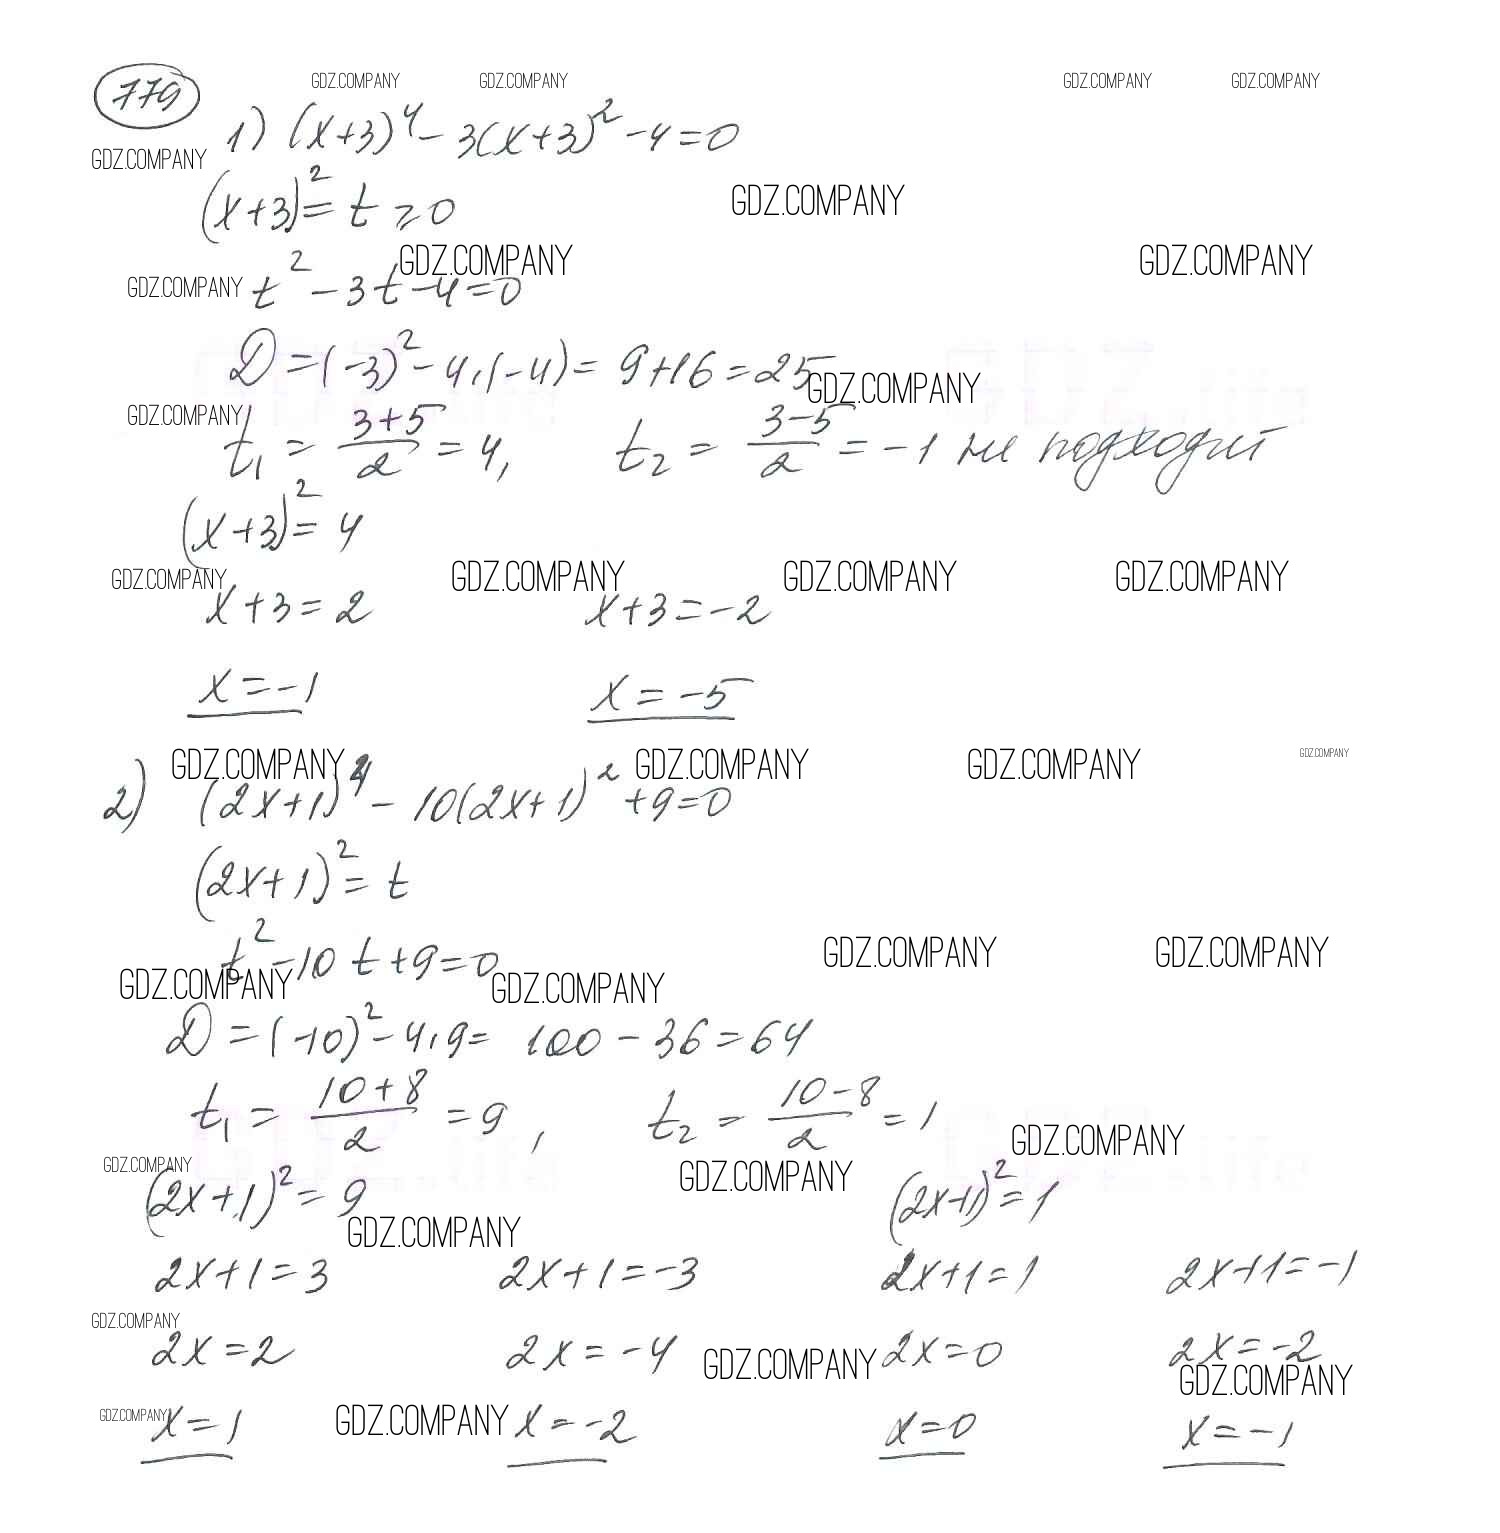 779
GDZ.COMPANY GDZ.COMPANY GDZ.COMPANY GDZ.COMPANY
1) (x+3)⁴ - 3(x+3)² - 4 = 0
GDZ.COMPANY
(x+3)² = t ≥ 0
GDZ.COMPANY
GDZ.COMPANY GDZ.COMPANY
GDZ.COMPANY
t² - 3t - 4 = 0
D = (-3)² - 4·(-4) = 9 + 16 = 25
GDZ.COMPANY
GDZ.COMPANY
t₁ = (3+5)/2 = 4, t₂ = (3-5)/2 = -1 не подходит
(x+3)² = 4
GDZ.COMPANY GDZ.COMPANY GDZ.COMPANY GDZ.COMPANY
x+3 = 2 x+3 = -2
x = -1 x = -5
GDZ.COMPANY GDZ.COMPANY GDZ.COMPANY GDZ.COMPANY
2) (2x+1)⁴ - 10(2x+1)² + 9 = 0
(2x+1)² = t
t² - 10t + 9 = 0
GDZ.COMPANY GDZ.COMPANY
GDZ.COMPANY GDZ.COMPANY
D = (-10)² - 4·9 = 100 - 36 = 64
t₁ = (10+8)/2 = 9, t₂ = (10-8)/2 = 1
GDZ.COMPANY
GDZ.COMPANY GDZ.COMPANY
(2x+1)² = 9 (2x+1)² = 1
GDZ.COMPANY
2x+1 = 3 2x+1 = -3 2x+1 = 1 2x+1 = -1
GDZ.COMPANY
2x = 2 2x = -4 2x = 0 2x = -2
GDZ.COMPANY GDZ.COMPANY
GDZ.COMPANY GDZ.COMPANY
x = 1 x = -2 x = 0 x = -1